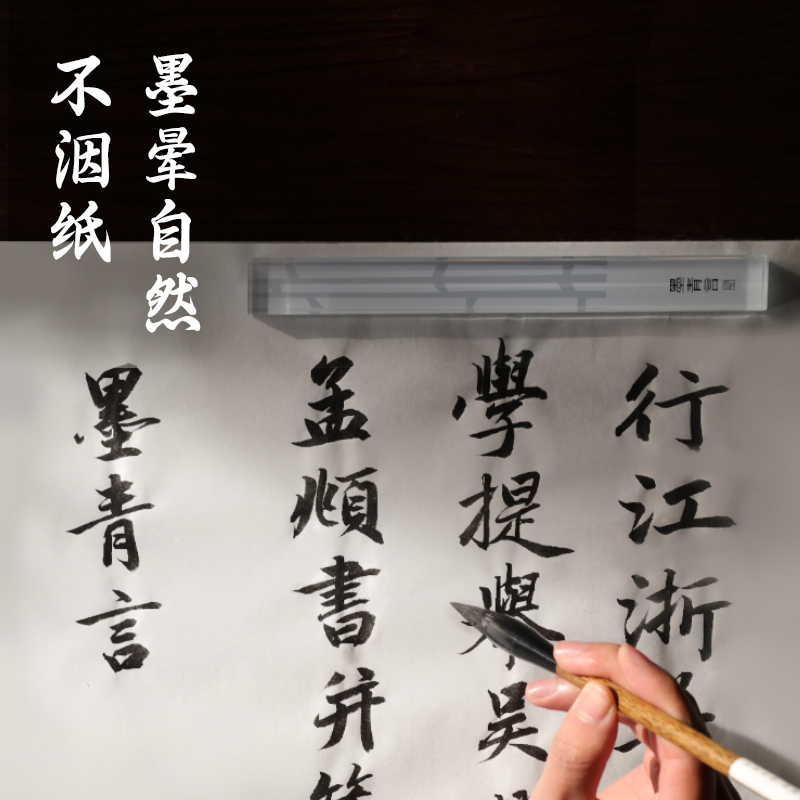 墨晕自然
不洇纸
墨青言
行江浙
學提舉吳
孟頫書并
墨青言